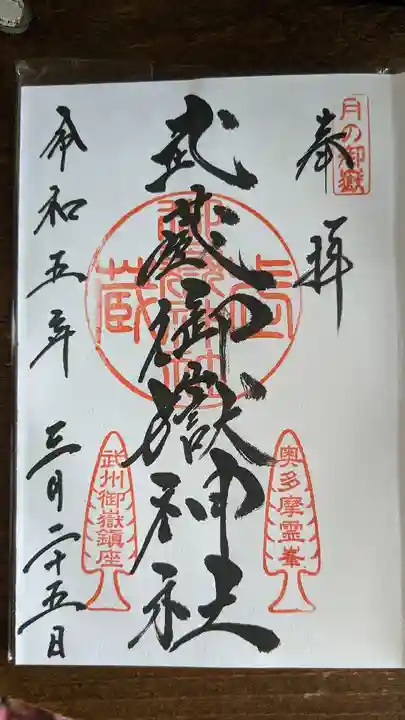 月の御嶽
奉拝
奥多摩霊峯
武蔵御嶽神社
武州御嶽鎮座
令和五年三月二十五日